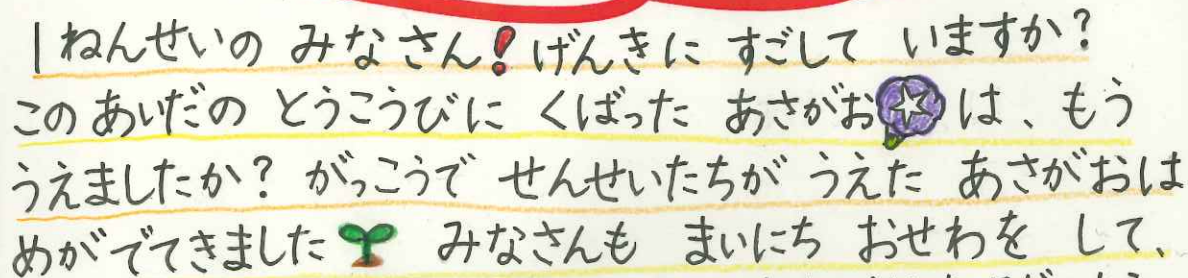 1ねんせいの みなさん！げんきに すごして いますか？
このあいだの とうこうびに くばった あさがおは、もう
うえましたか？がっこうで せんせいたちが うえた あさがおは
めがでてきました みなさんも まいにち おせわを して、